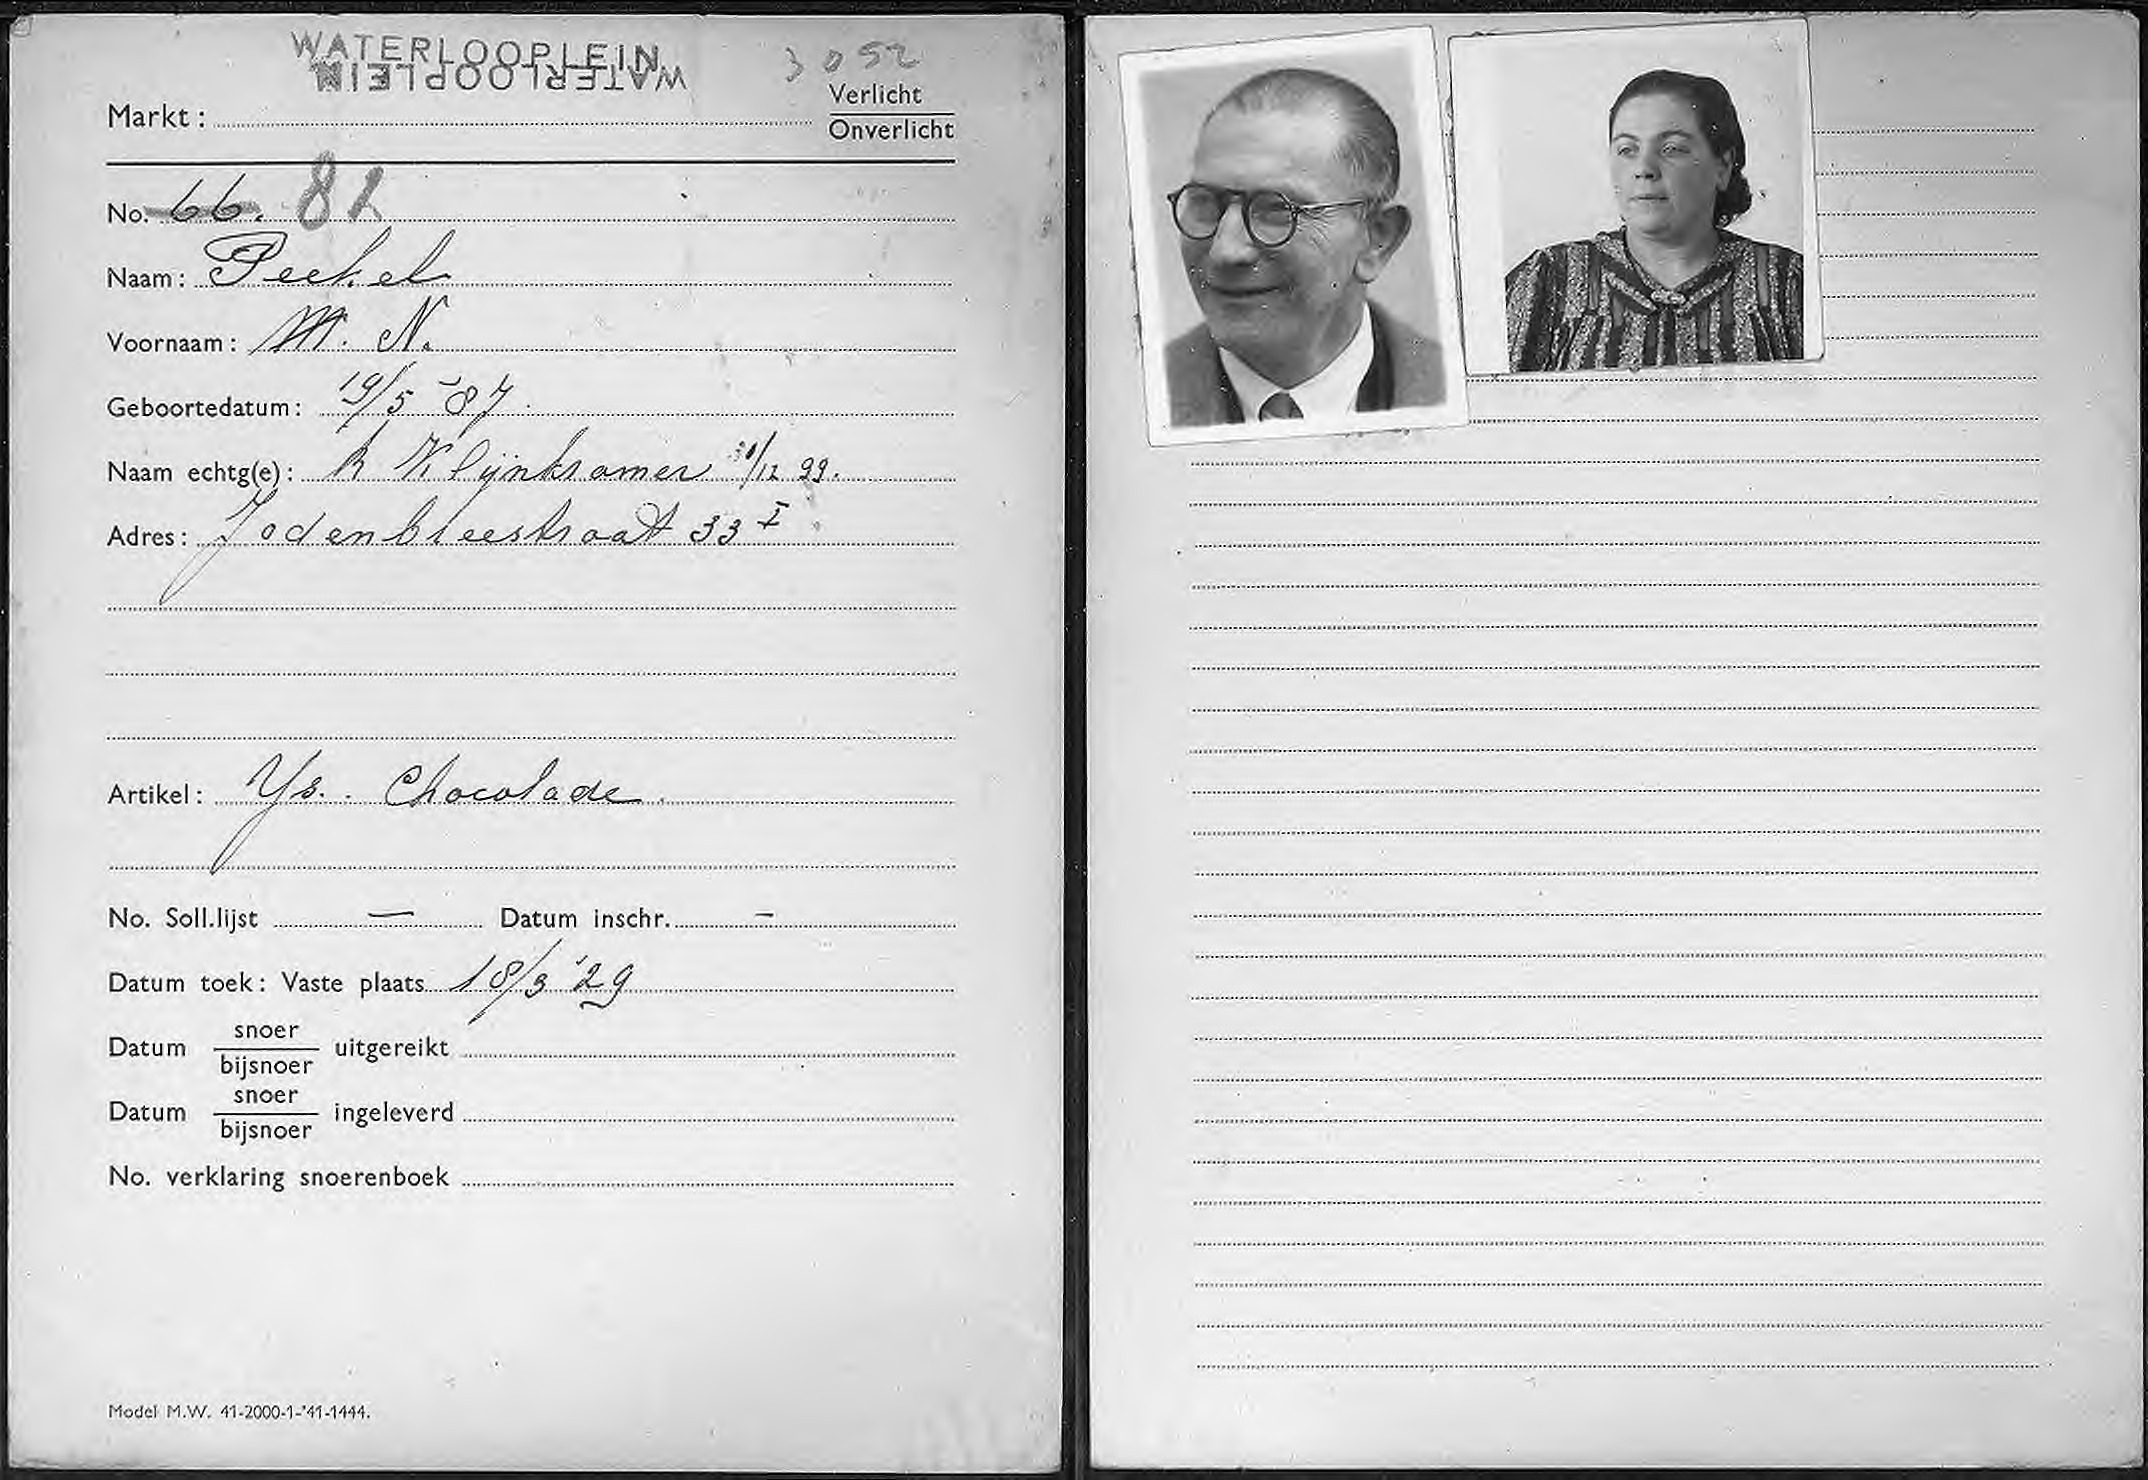 WATERLOOPLEIN
WATERLOOPLEIN
3052
Markt :
Verlicht
Onverlicht
No. 66. 82
Naam : Peekel
Voornaam : M. N.
Geboortedatum : 19/5 '87
Naam echtg(e) : R Klijnkramer 31/12 99.
Adres : Jodenbreestraat 33 I
Artikel : Ys. Chocolade.
No. Soll.lijst — Datum inschr. –
Datum toek : Vaste plaats 18/3 '29
Datum snoer/bijsnoer uitgereikt
Datum snoer/bijsnoer ingeleverd
No. verklaring snoerenboek
Model M.W. 41-2000-1-'41-1444.